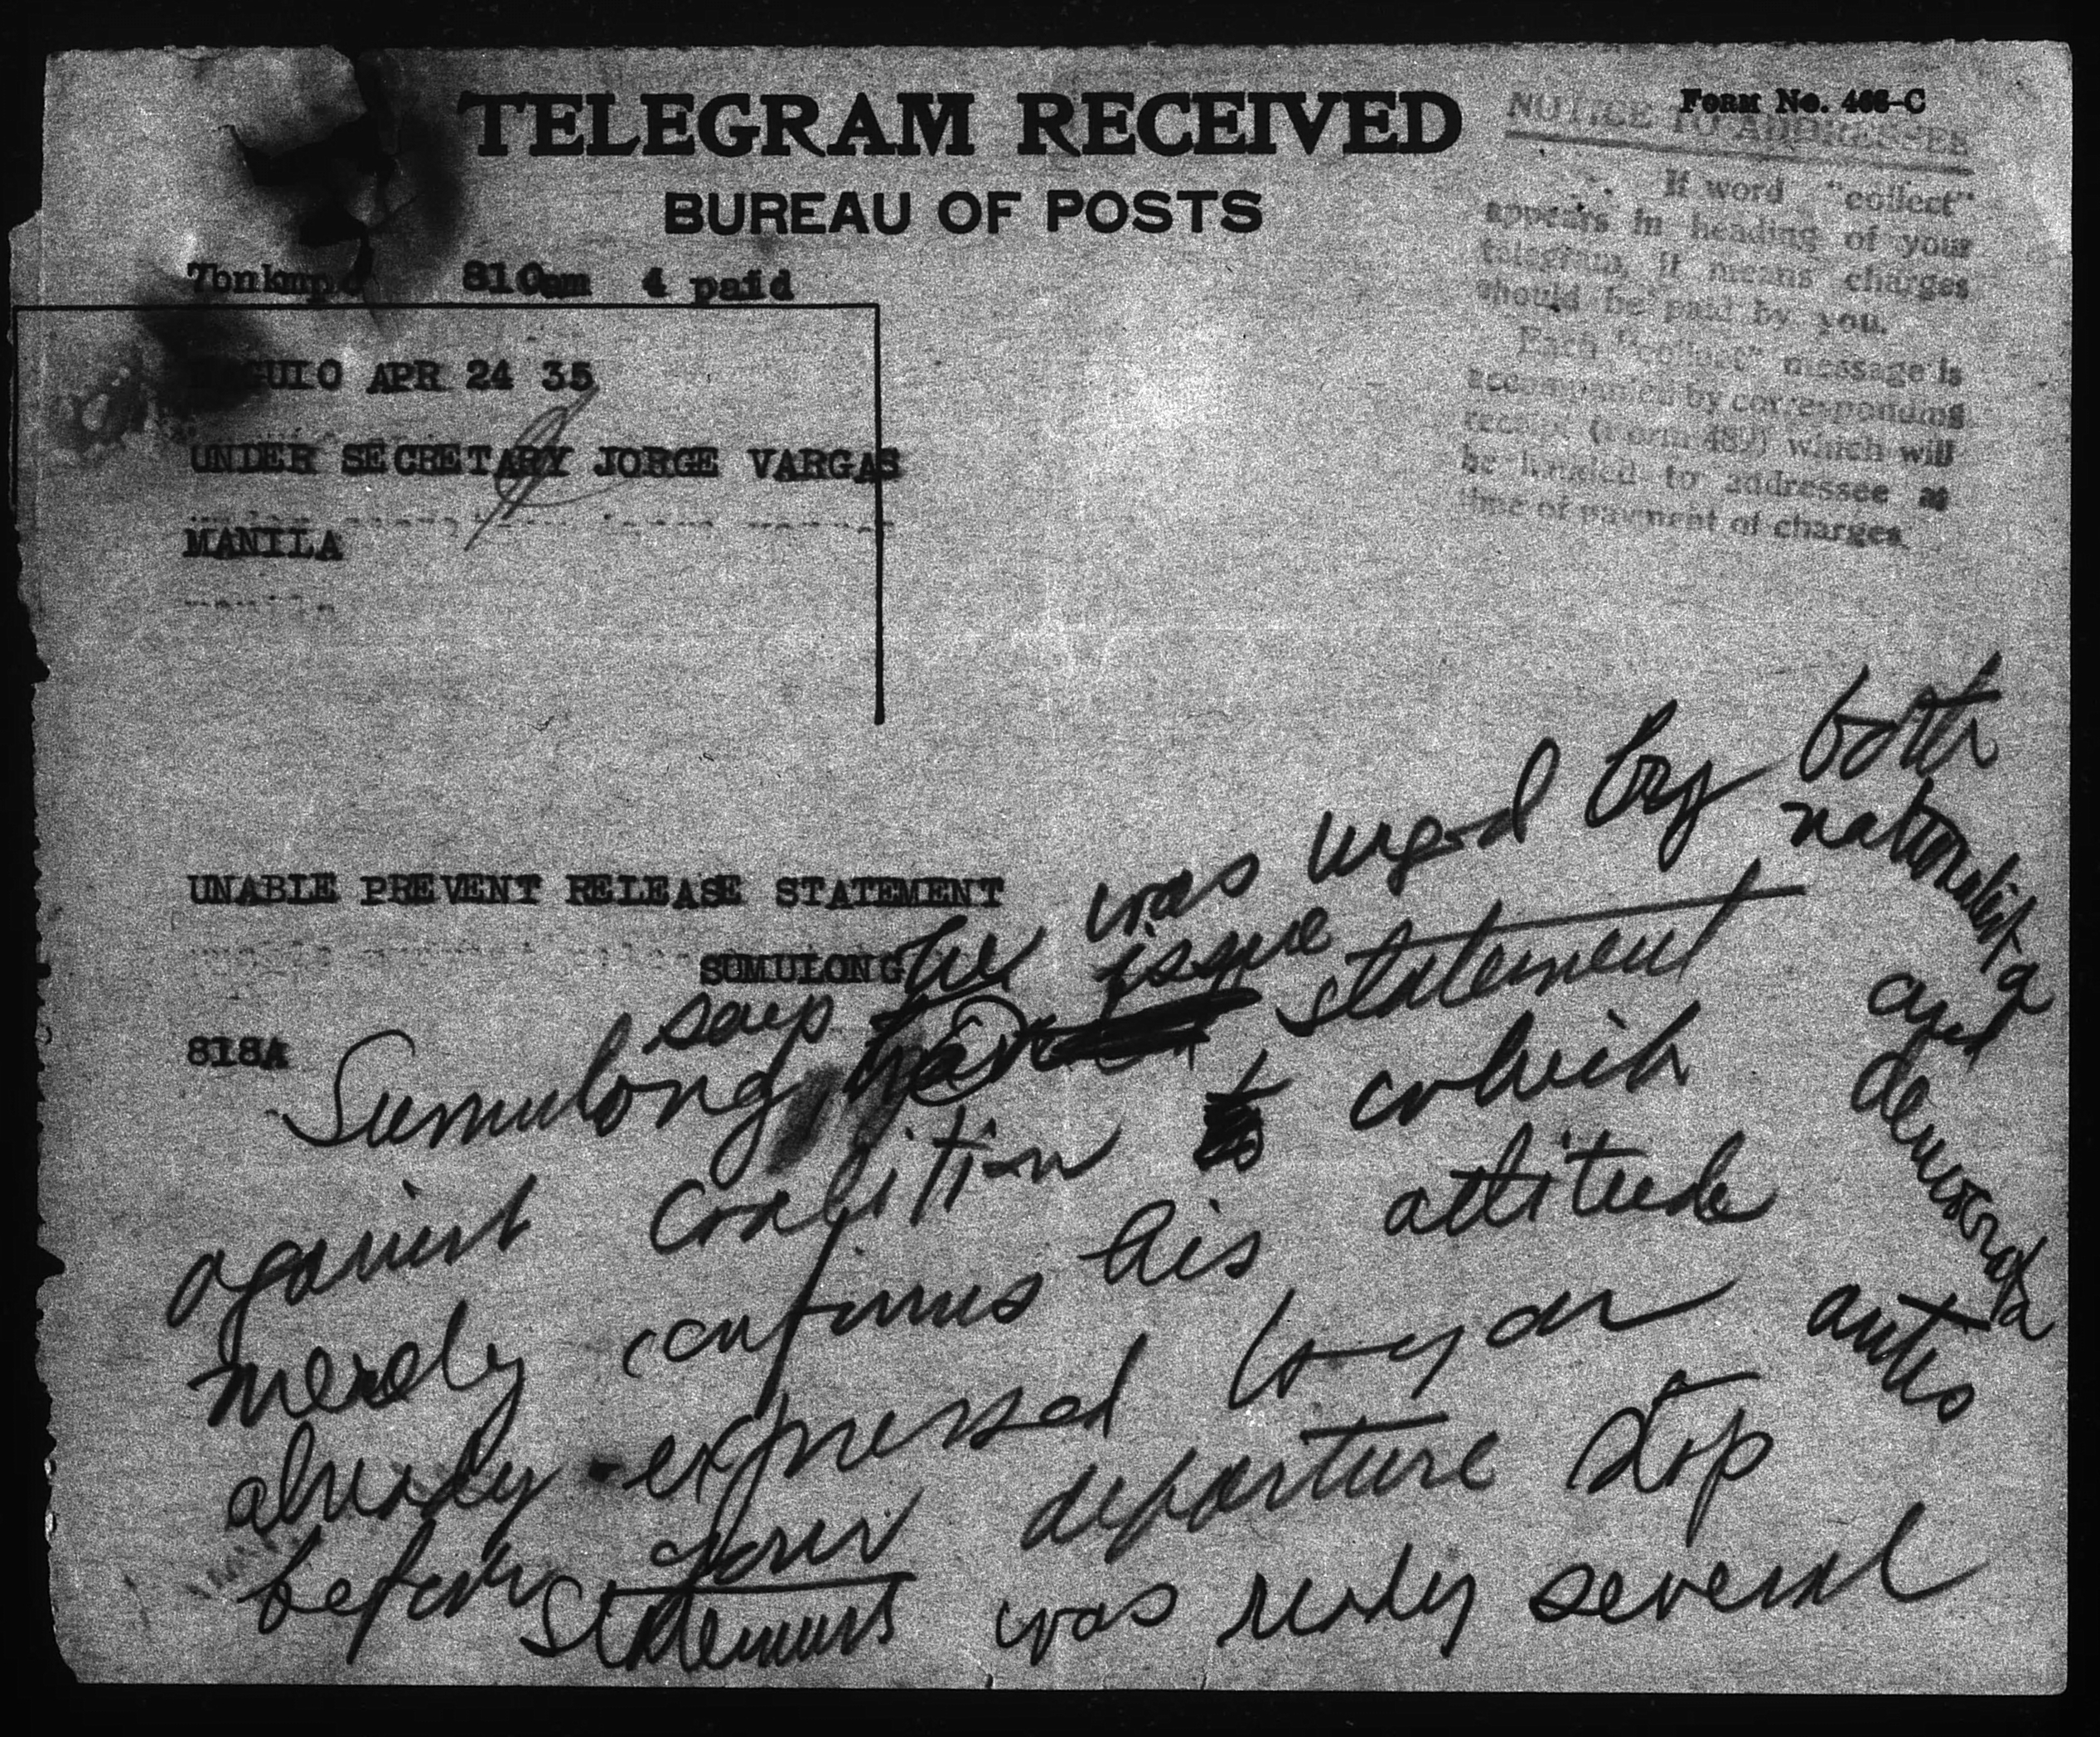 TELEGRAM RECEIVED
BUREAU OF POSTS
FORM No. 466-C
NOTICE TO ADDRESSEE
If word "collect"
appears in heading of your
telegram, it means charges
should be paid by you.
Each "collect" message is
accompanied by corresponding
receipt (Form 489) which will
be handed to addressee at
time of payment of charges
810am 4 paid
BAGUIO APR 24 35
UNDER SECRETARY JORGE VARGAS
MANILA
UNABLE PREVENT RELEASE STATEMENT
SUMULONG
818A
he was urged by both
nationalista
and
democrata
antis
says issue
Sumulong statement
against coalition which
merely confirms his attitude
already expressed
before your departure Stop
Statement was ready several